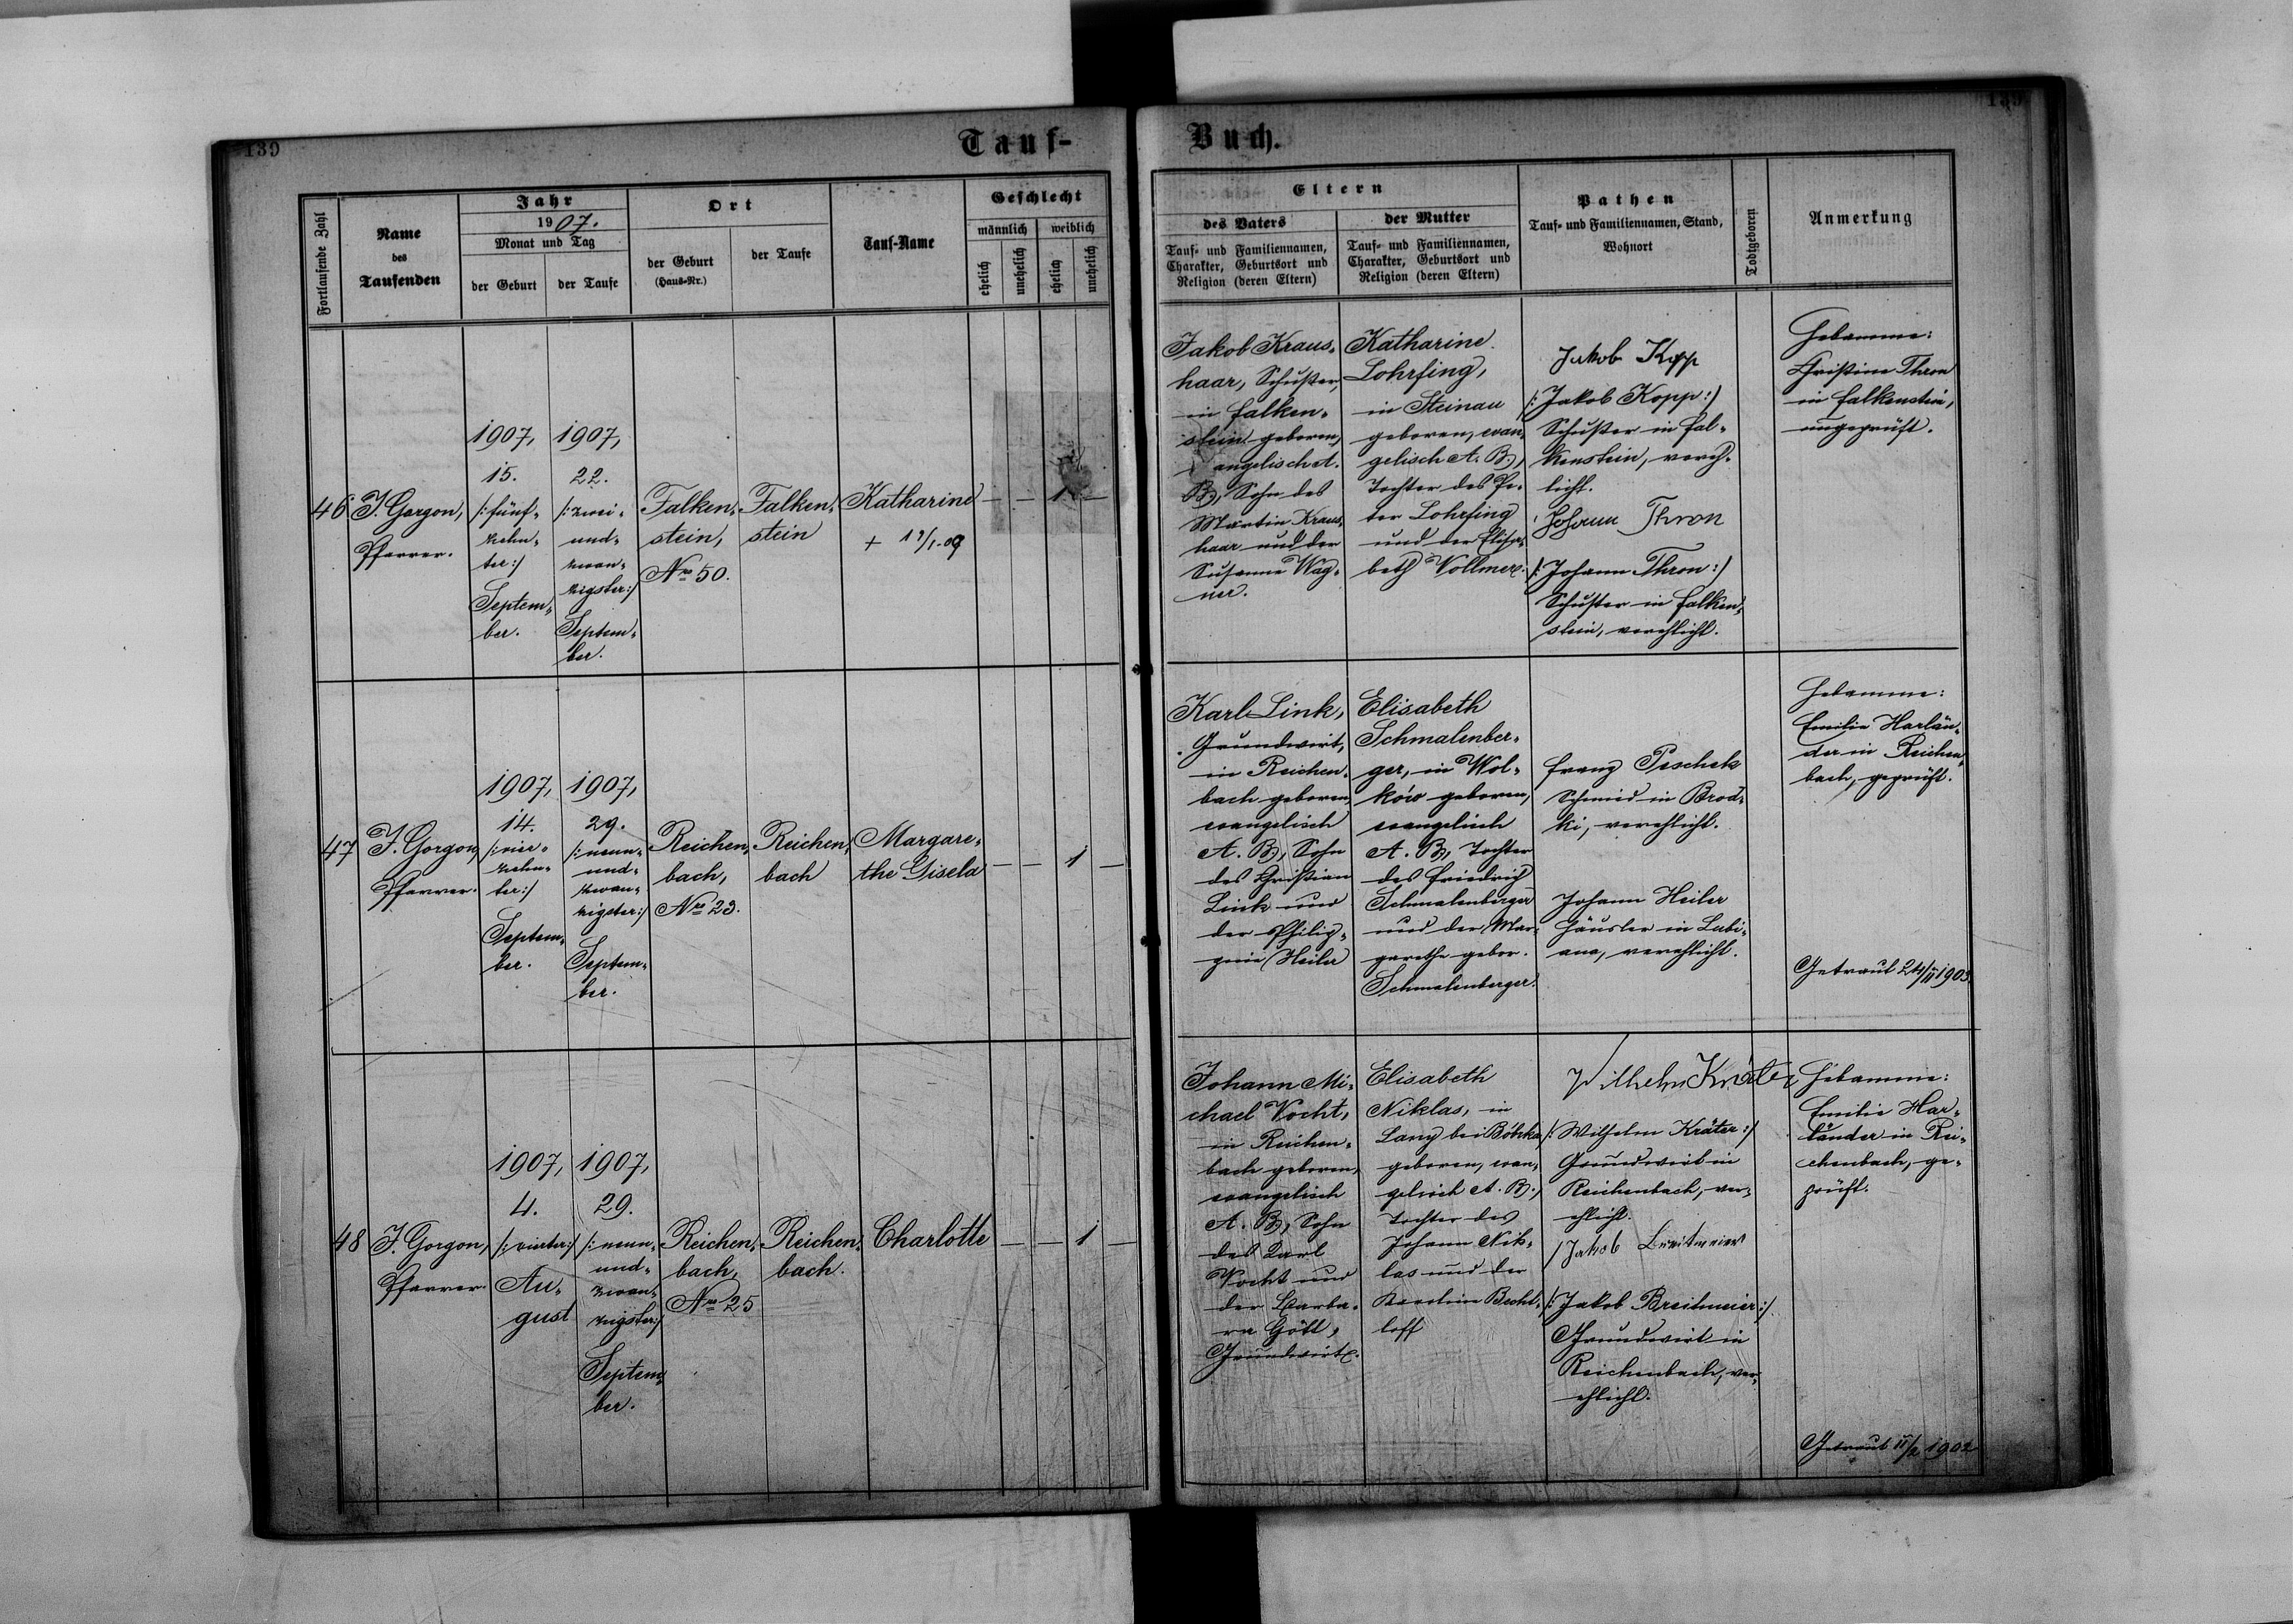 139
Tauf-
Buch.
139
Fortlaufende Zahl
Name
des
Taufenden
Jahr
1907.
Monat und Tag
der Geburt
der Taufe
Ort
der Geburt
(Haus-Nr.)
der Taufe
Tauf-Name
Geschlecht
männlich
weiblich
ehelich
unehelich
ehelich
unehelich
Eltern
des Vaters
Tauf- und Familiennamen,
Charakter, Geburtsort und
Religion (deren Eltern)
der Mutter
Tauf- und Familiennamen,
Charakter, Geburtsort und
Religion (deren Eltern)
Pathen
Tauf- und Familiennamen, Stand,
Wohnort
Todtgeboren
Anmerkung
46
J. Gorgon,
Pfarrer.
1907,
15.
/:fünf-
zehn-
ter:/
Septem-
ber.
1907,
22.
/:zwei-
und-
zwan-
zigster:/
Septem-
ber.
Falken-
stein,
No 50.
Falken-
stein
Katharine
+
— — 1 —
Jakob Kraus-
haar, Schuster,
in Falken-
stein geboren,
evangelisch A.
B., Sohn des
Martin Kraus-
haar und der
Susanne Wag-
ner.
Katharine
Lohrfing,
in Steinau
geboren, evan-
gelisch A. B.,
Tochter des Pe-
ter Lohrfing
und der Elisa-
beth Vollmer.
Jakob Kopp
/:Jakob Kopp:/
Schuster in Fal-
kenstein, vereh-
licht.
Johann Thron
/:Johann Thron:/
Schuster in Falken-
stein, verehlicht.
Hebamme:
Christine Thron
in Falkenstein,
ungeprüft.
47
J. Gorgon,
Pfarrer.
1907,
14.
/:vier-
zehn-
ter:/
Septem-
ber.
1907,
29.
/:neun-
und-
zwan-
zigster:/
Septem-
ber.
Reichen-
bach,
No 23.
Reichen-
bach
Margare-
the Gisela
— — 1 —
Karl Link,
Grundwirt,
in Reichen-
bach geboren,
evangelisch
A. B., Sohn
des Christian
Link und
der Philip-
pine Heiler
Elisabeth
Schmalenber-
ger, in Wol-
ków geboren,
evangelisch
A. B., Tochter
des Friedrich
Schmalenberger
und der Mar-
garethe gebor.
Schmalenberger.
Franz Peschek
Schmied in Brod-
ki, verehlicht.
Johann Heiler
Häusler in Lubi-
ana, verehlicht.
Hebamme:
Emilie Harlän-
der in Reichen-
bach, geprüft.
Getraut 24/II 1903.
48
J. Gorgon,
Pfarrer.
1907,
4.
/:vierter:/
Au-
gust
1907,
29.
/:neun-
und-
zwan-
zigster:/
Septem-
ber.
Reichen-
bach,
No 25
Reichen-
bach.
Charlotte
— — 1 —
Johann Mi-
chael Vocht,
in Reichen-
bach geboren,
evangelisch
A. B., Sohn
des Karl
Vocht und
der Barba-
ra Göttl,
Grundwirt.
Elisabeth
Niklas, in
Lany bei Bóbrka
geboren, evan-
gelisch A. B.,
Tochter des
Johann Nik-
las und der
Karoline Becht-
loff
Wilhelm Kräter
/:Wilhelm Kräter:/
Grundwirt in
Reichenbach, ver-
ehlicht.
Jakob Breitmeier
/:Jakob Breitmeier:/
Grundwirt in
Reichenbach, ver-
ehlicht.
Hebamme:
Emilie Har-
länder in Rei-
chenbach, ge-
prüft.
Getraut